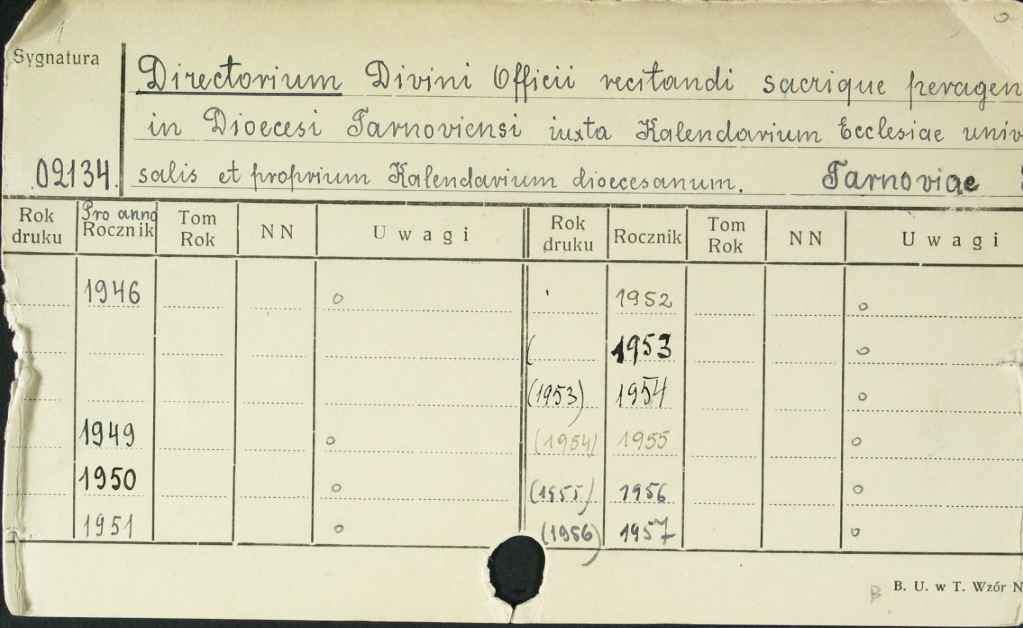 Sygnatura
Directorium Divini Officii recitandi sacrique peragen
in Dioecesi Tarnoviensi iuxta Kalendarium Ecclesiae univ
02134. salis et proprium Kalendarium dioecesanum. Tarnoviae
Rok druku Pro anno Rocznik Tom Rok NN Uwagi Rok druku Rocznik Tom Rok NN Uwagi
1946 o 1952 o
( 1953 o
(1953) 1954 o
1949 o (1954) 1955 o
1950 o (1955) 1956 o
1951 o (1956) 1957 o
B. U. w T. Wzór N